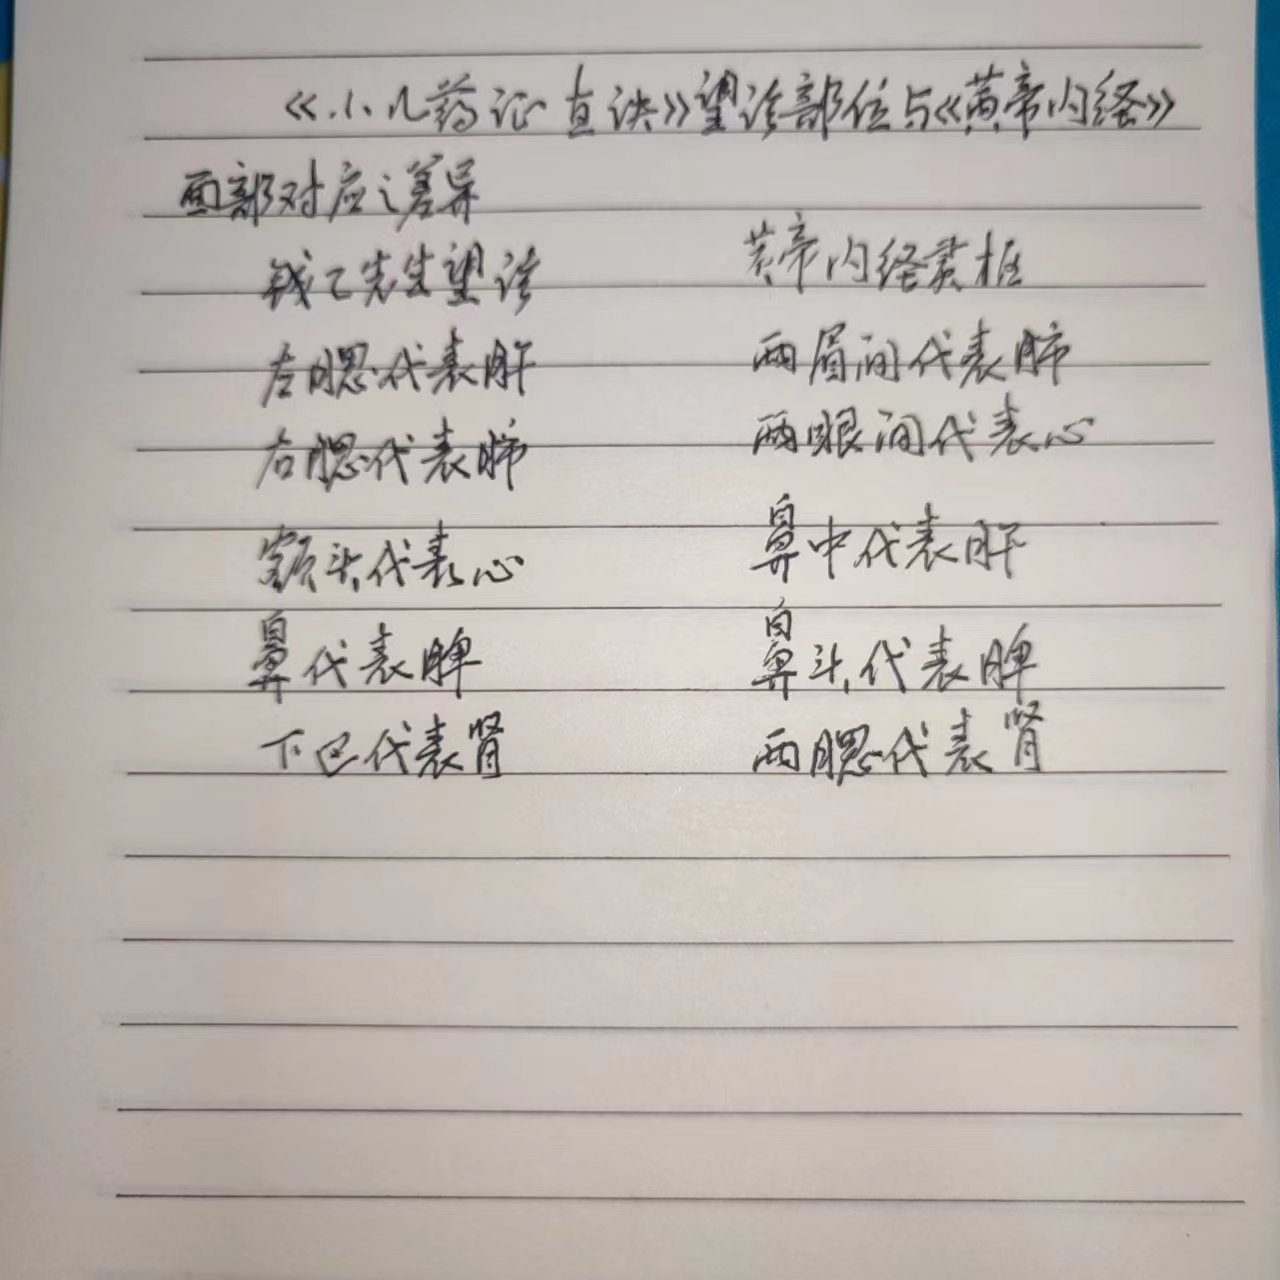 《小儿药证直诀》望诊部位与《黄帝内经》
面部对应之差异
钱乙先生望诊
黄帝内经灵枢
左腮代表肝
两眉间代表肺
右腮代表肺
两眼间代表心
额头代表心
鼻中代表肝
鼻代表脾
鼻头代表脾
下巴代表肾
两腮代表肾